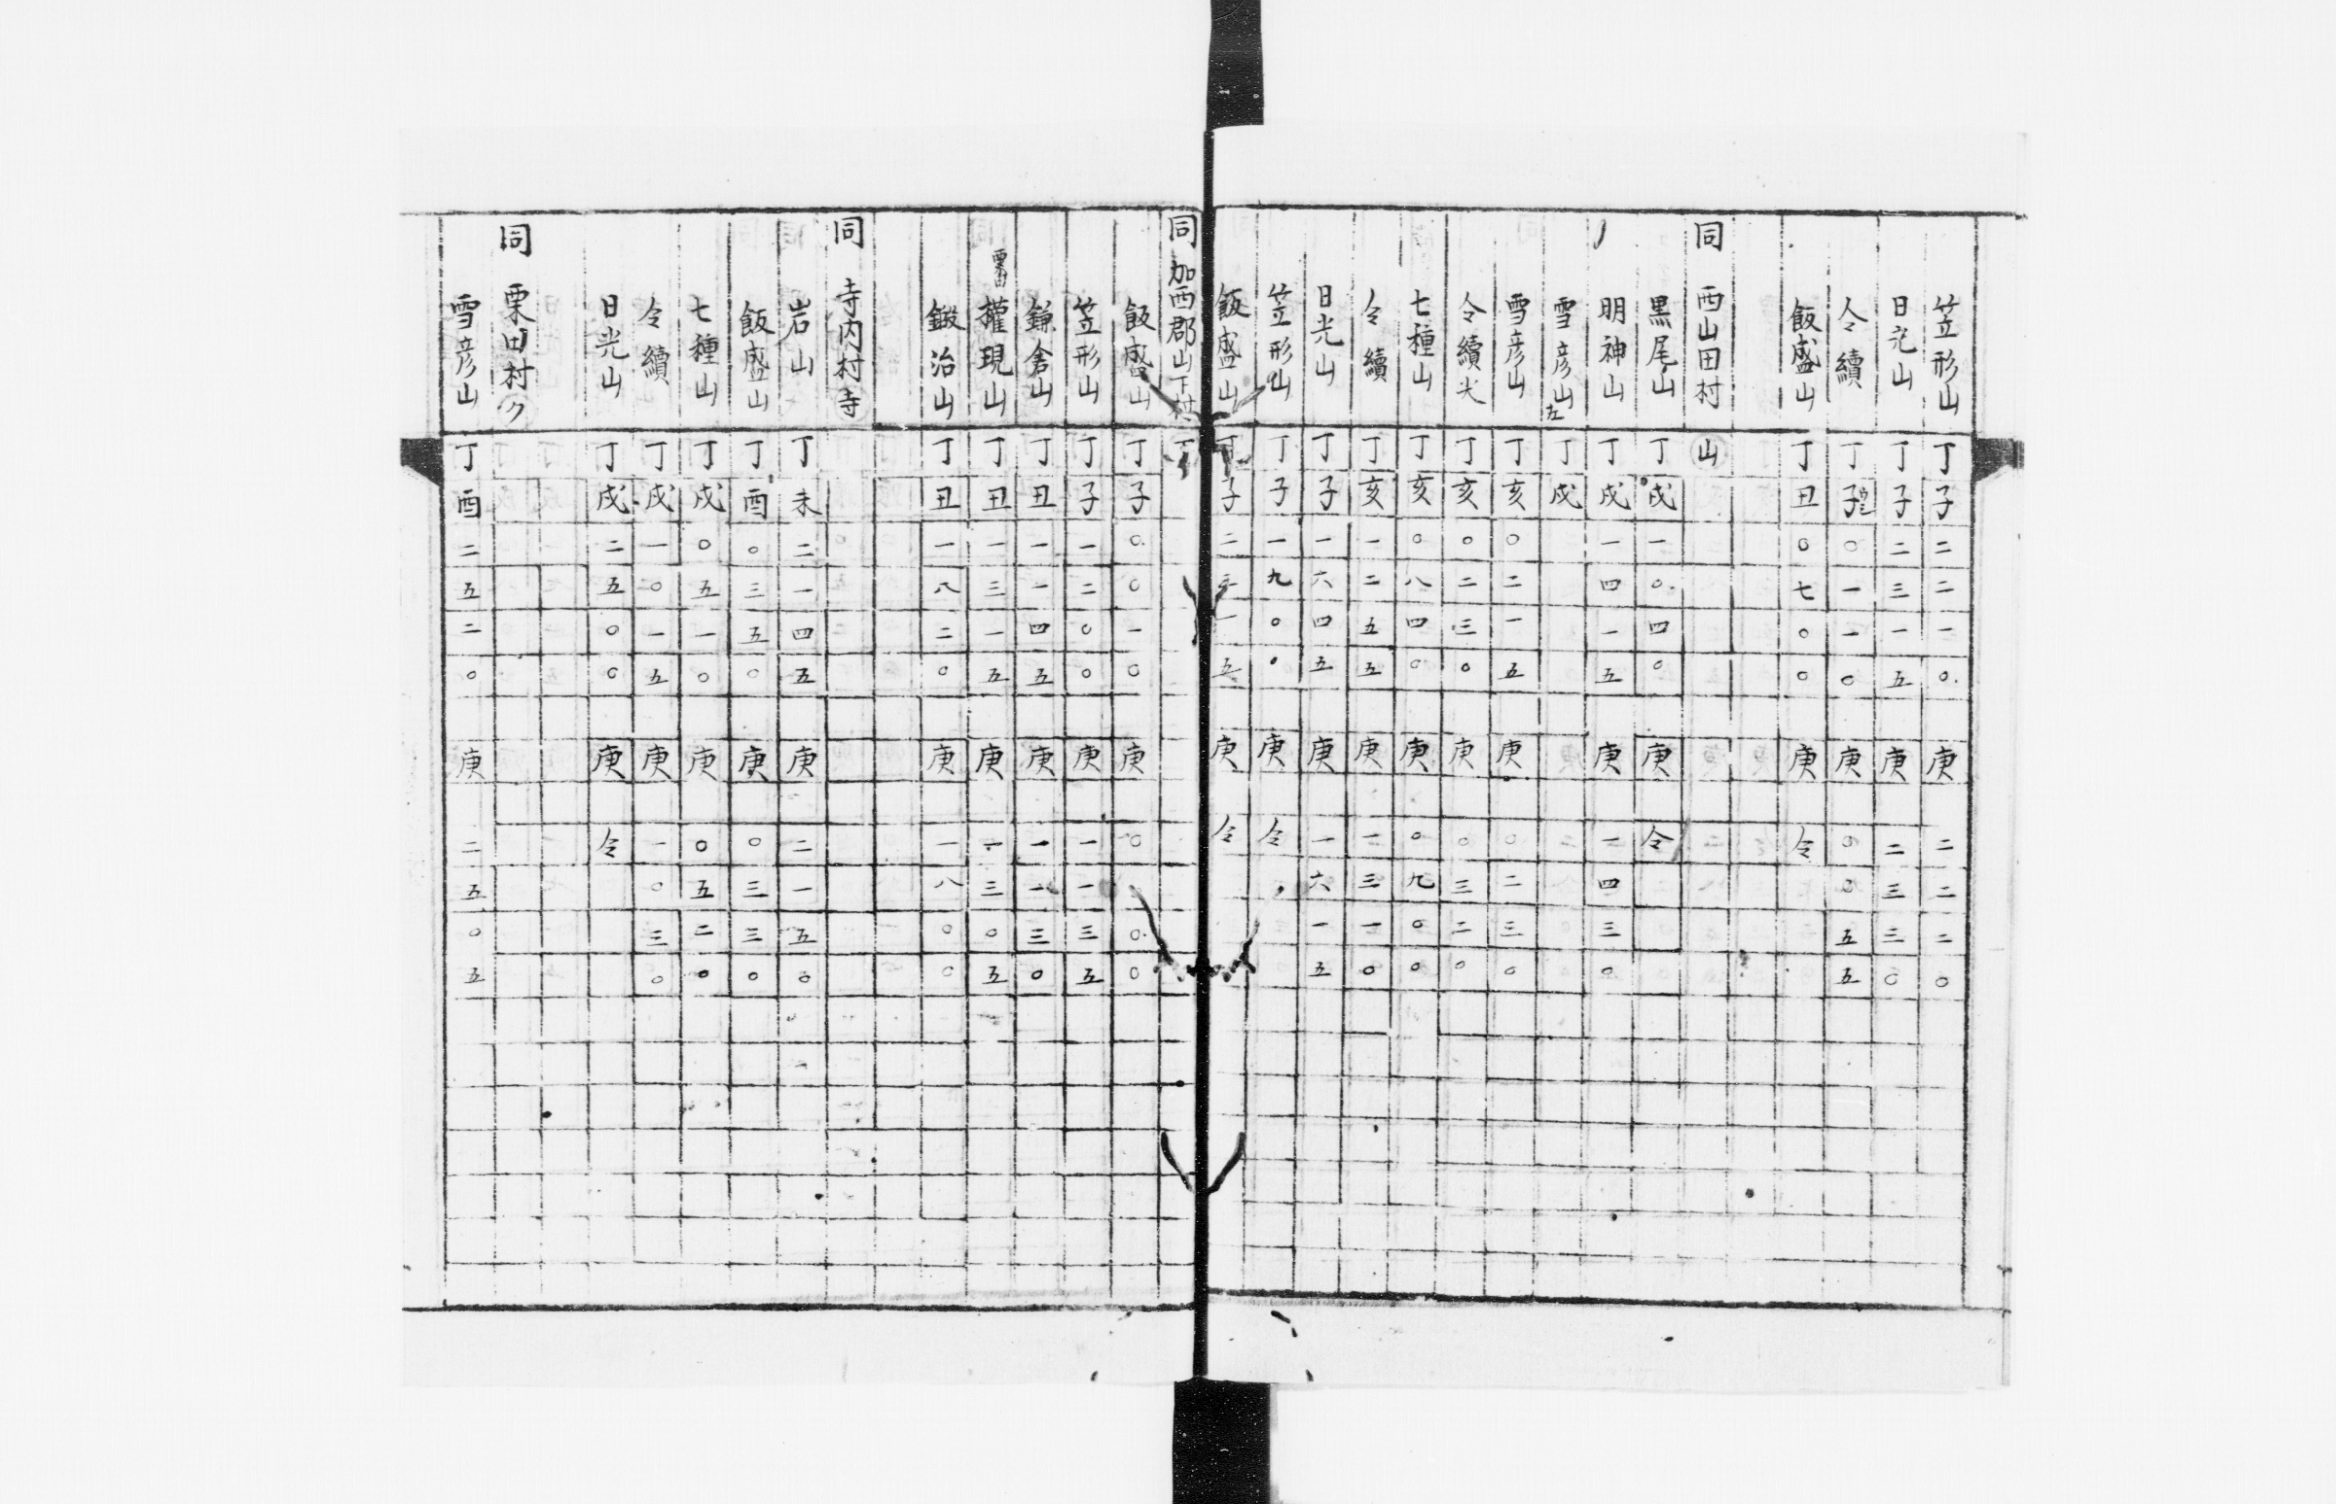 笠形山 丁子 二二一〇 庚 二二二〇
日光山 丁子 二三一五 庚 二三三〇
仝續 丁子 〇一一〇 庚 〇〇五五
飯盛山 丁丑 〇七〇〇 庚 仝
同 西山田村 山
黒尾山 丁戌 一〇四〇 庚 仝
明神山 丁戌 一四一五 庚 一四三〇
雪彦山左 丁戌
雪彦山 丁亥 〇二一五 庚 〇二三〇
仝續犬 丁亥 〇二三〇 庚 〇三二〇
七種山 丁亥 〇八四〇 庚 〇九〇〇
仝續 丁亥 一二五五 庚 一三一〇
日光山 丁子 一六四五 庚 一六一五
笠形山 丁子 一九〇〇 庚 仝
飯盛山 丁子 二三一五 庚 仝
同 加西郡山下村 丁
飯盛山 丁子 〇〇一〇 庚 〇〇〇〇
笠形山 丁子 一二〇〇 庚 一一三五
鎌倉山 丁丑 一一四五 庚 一一三〇
權現山 丁丑 一三一五 庚 一三〇五
鍛治山 丁丑 一八二〇 庚 一八〇〇
同 寺内村 寺
岩山 丁未 二一四五 庚 二一五〇
飯盛山 丁酉 〇三五〇 庚 〇三三〇
七種山 丁戌 〇五一〇 庚 〇五二〇
仝續 丁戌 一〇一五 庚 一〇三〇
日光山 丁戌 二五〇〇 庚 仝
同 栗田村 ク
雪彦山 丁酉 二五二〇 庚 二五〇五